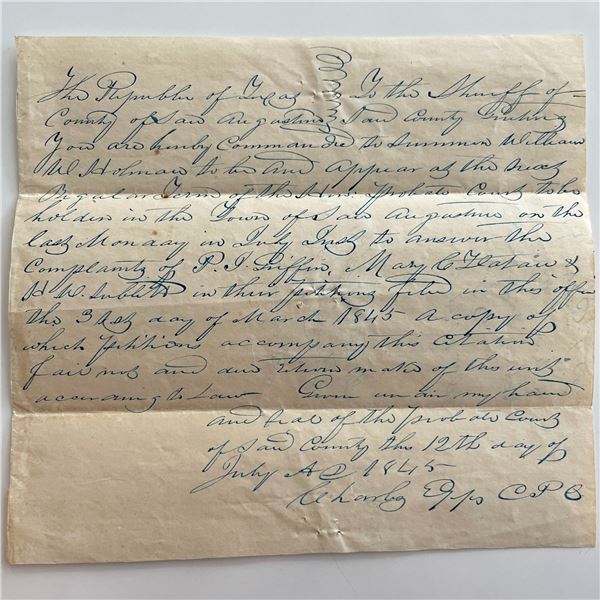 The Republic of Texas To the Sheriff of
County of San Augustine Said County Greeting
You are hereby Commanded to Summon William
W Holman to be and appear at the next
Regular Term of the Hon. Probate Court to be
holden in the Town of San Augustine on the
last Monday in July Inst to answer the
Complaint of P. J. Griffin, Mary C &
H W Sublett in their petition filed in this office
the 31st day of March 1845 A copy of
which petition accompany this Citation
fail not and due return make of this writ
according to Law Given under my hand
and Seal of the probate Court
of Said County this 12th day of
July AD 1845
Charles Epps C P C